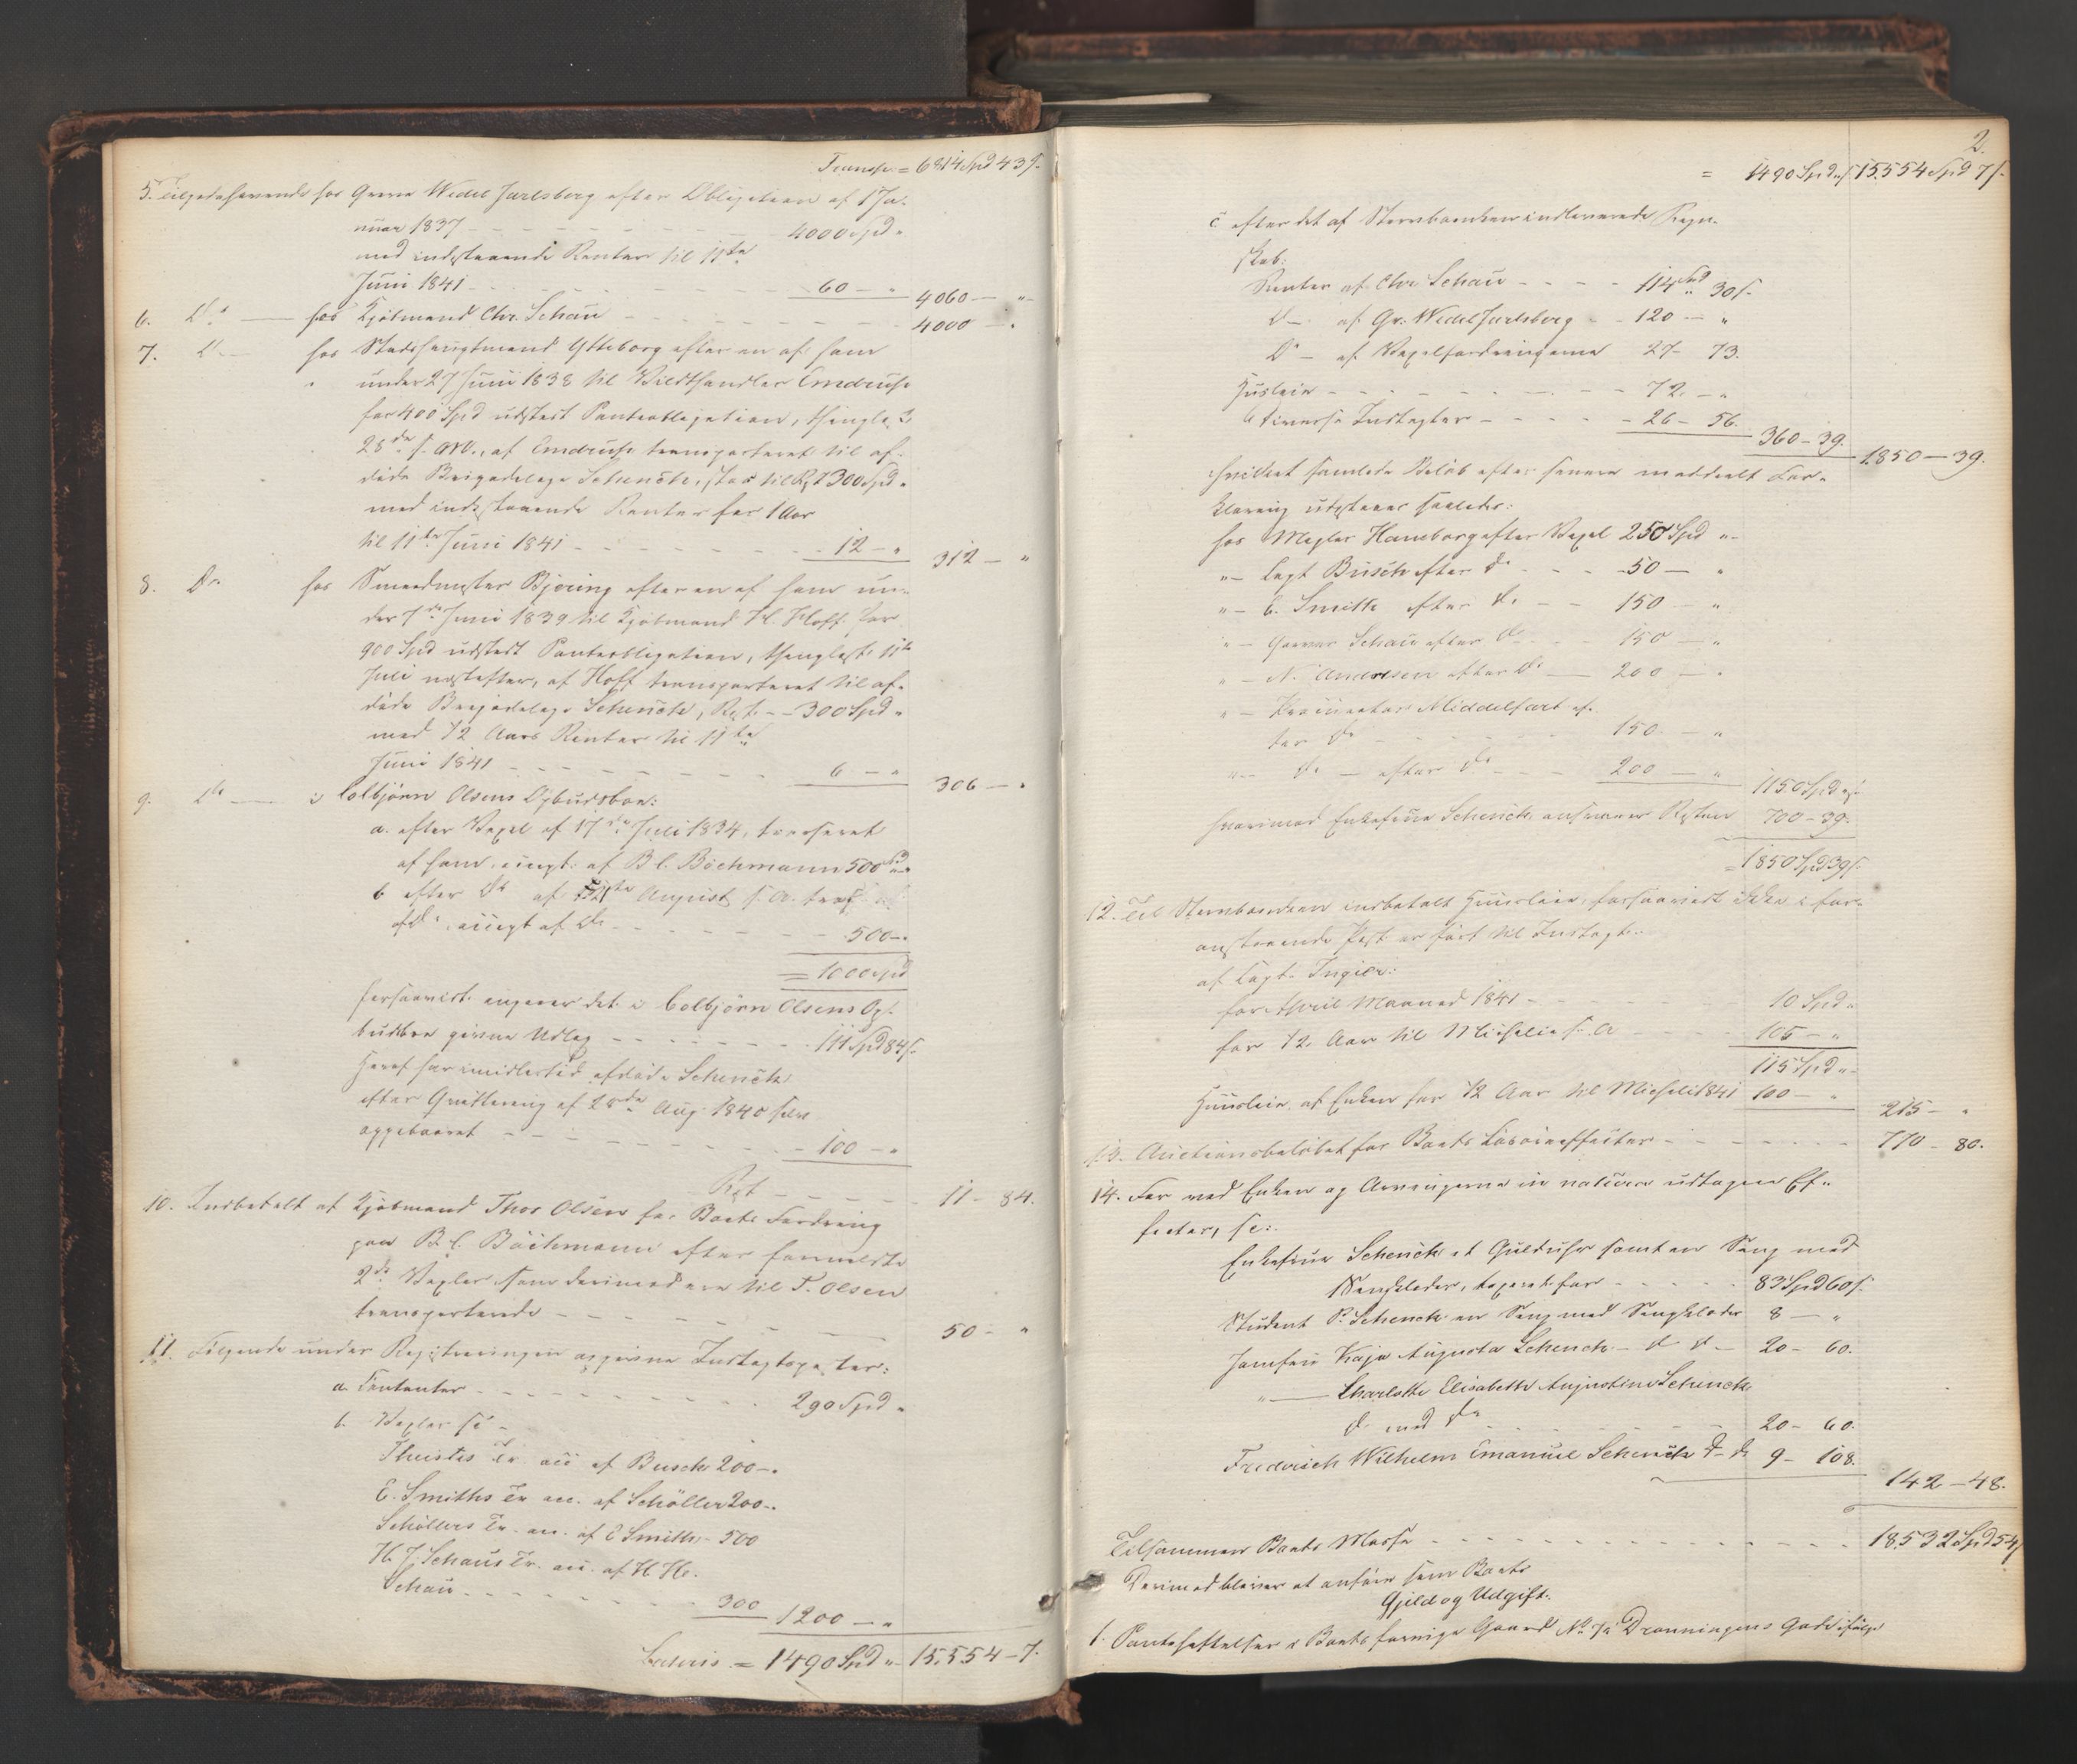 Transp. = 6814 Spd 43 s.
5. Tilgodehavende hos Greve Wedel Jarlsberg efter Obligation af 1 Ja-
nuar 1837 - - - 4000 Spd "
med indestaaende Renter til 11te
Juni 1841 - - - 60 - " 4060 - "
6. Do hos Kjöbmand Chr. Schou - - - 4000 - "
7. Do hos Stadshauptmand Ytteborg efter en af ham
under 27 Juni 1838 til Vildthandler Emdruse
for 400 Spd udstedt Panteobligation, thinglæst
28de s. M., af Emdruse transporteret til af-
döde Brigadelæge Schenck, stor til Rst 300 Spd "
med indestaaende Renter for 1 Aar
til 11te Juni 1841 - - - 12 - " 312 - "
8. Do hos Smedmester Bjering efter en af ham un-
der 7de Juni 1839 til Kjöbmand H. Hoff for
900 Spd udstedt Panteobligation, thinglæst 11te
Juli næstefter, af Hoff transporteret til af-
döde Brigadelæge Schenck, Rst. - - 300 Spd "
med 1/2 Aars Renter til 11te
Juni 1841 - - - 6 - " 306 - "
9. Do i Colbjörn Olsens Opbudsboe:
a. efter Vexel af 17de Juli 1834, trasseret
af ham, accept. af B C. Böchmann 500 Spd "
b efter Do af August s. A. tras
af do, accept af do - - - 500 - "
= 1000 Spd
forsaavidt angaaer det i Colbjörn Olsens Op-
budsboe givne Udlæg - - - 111 Spd 84 s.
Heraf har imidlertid afdöde Schenck
efter Qvittering af 28de Aug. 1840 selv
oppebaaret - - - 100 - "
Rst - - - 11 - 84.
10. Indbetalt af Kjöbmand Thor Olsen for Boets Fordring
paa B. C. Böchmann efter formeldte
2de Vexler som derimod ere til T. Olsen
transporterede - - - 50 - "
11. Fölgende under Registreringen opgivne Indtægtsposter:
a. Contanter - - - 290 Spd "
b. Vexler sc -
Thurstes Tr. acc af Busch 200 - "
C. Smiths Tr. acc. af Schöller 200 - "
Schöllers Tr. acc. af C Smith - 500
H. J. Schous Tr. acc. af H. He.
Schou - - - 300 1200 - "
Lateris. = 1490 Spd " 15,554 - 7.
2.
= 1490 Spd " s 15554 Spd 7 s.
c efter det af Sterboenken indleverede Regn-
skab:
Renter af Chr Schou - - - 114 Spd 30 s.
Do af Gr. Wedel Jarlsberg - - 120 - "
Do - af Vexelfordringerne 27 - 73.
Husleie - - - 72. - "
diverse Indtægter - - - 26 - 56.
360 - 39. 1850 - 39.
hvilket samlede Belöb efter senere meddeelt For-
klaring udstaaer saaledes:
hos Mægler Hamborg efter Vexel 250 Spd " -
" - Capt Busch efter do - - - 50 - "
" - C. Smith efter do - - 150 - "
" - Schou efter do - - 150 - "
" - N. Andresen efter do - 200 - "
" - Procurator Middelfart ef-
ter do 150 - "
" - do - efter do - - 200 - " 1150 Spd " s.
hvorimod Enkefrue Schenck ansvarer Resten 700 - 39.
= 1850 Spd 39 s.
12. Til Sterboenken indbetalt Huusleie, forsaavidt ikke i for-
anstaaende Post er fört til Indtægt:
af Capt. Ingier:
for April Maaned 1841 - - - 10 Spd "
for 1/2 Aar til Michelie s. A - - - 105 - "
115 Spd "
Huusleie af Enken for 1/2 Aar til Micheli 1841 100 - " 215 - "
13. Auctionsbelöbet for Boets Lösöreeffecter - - - 770 - 80.
14. For ved Enken og Arvingerne in natura udtagne Ef-
fecter, sc:
Enkefrue Schenck et Guldurhr samt en Seng med
Sengklæder, taxeret for - - - 83 Spd 60 s.
Student P. Schenck en Seng med Sengklæder 8 - "
Jomfru Kaja Augusta Schenck - d d - 20 - 60.
" - Charlotte Elisabeth Augustine Schenck
do med do - - - 20 - 60.
Frederich Wilhelm Emanuel Schenck d - d 9 - 108.
142 - 48.
Tilsammen Boets Masse - - - 18532 Spd 54 s
Derimod bliver at anföre som Boets
Gjeld og Udgift.
1. Pantehæftelser i Boets forrige Gaard No 7a Dronningens Gade ifölge